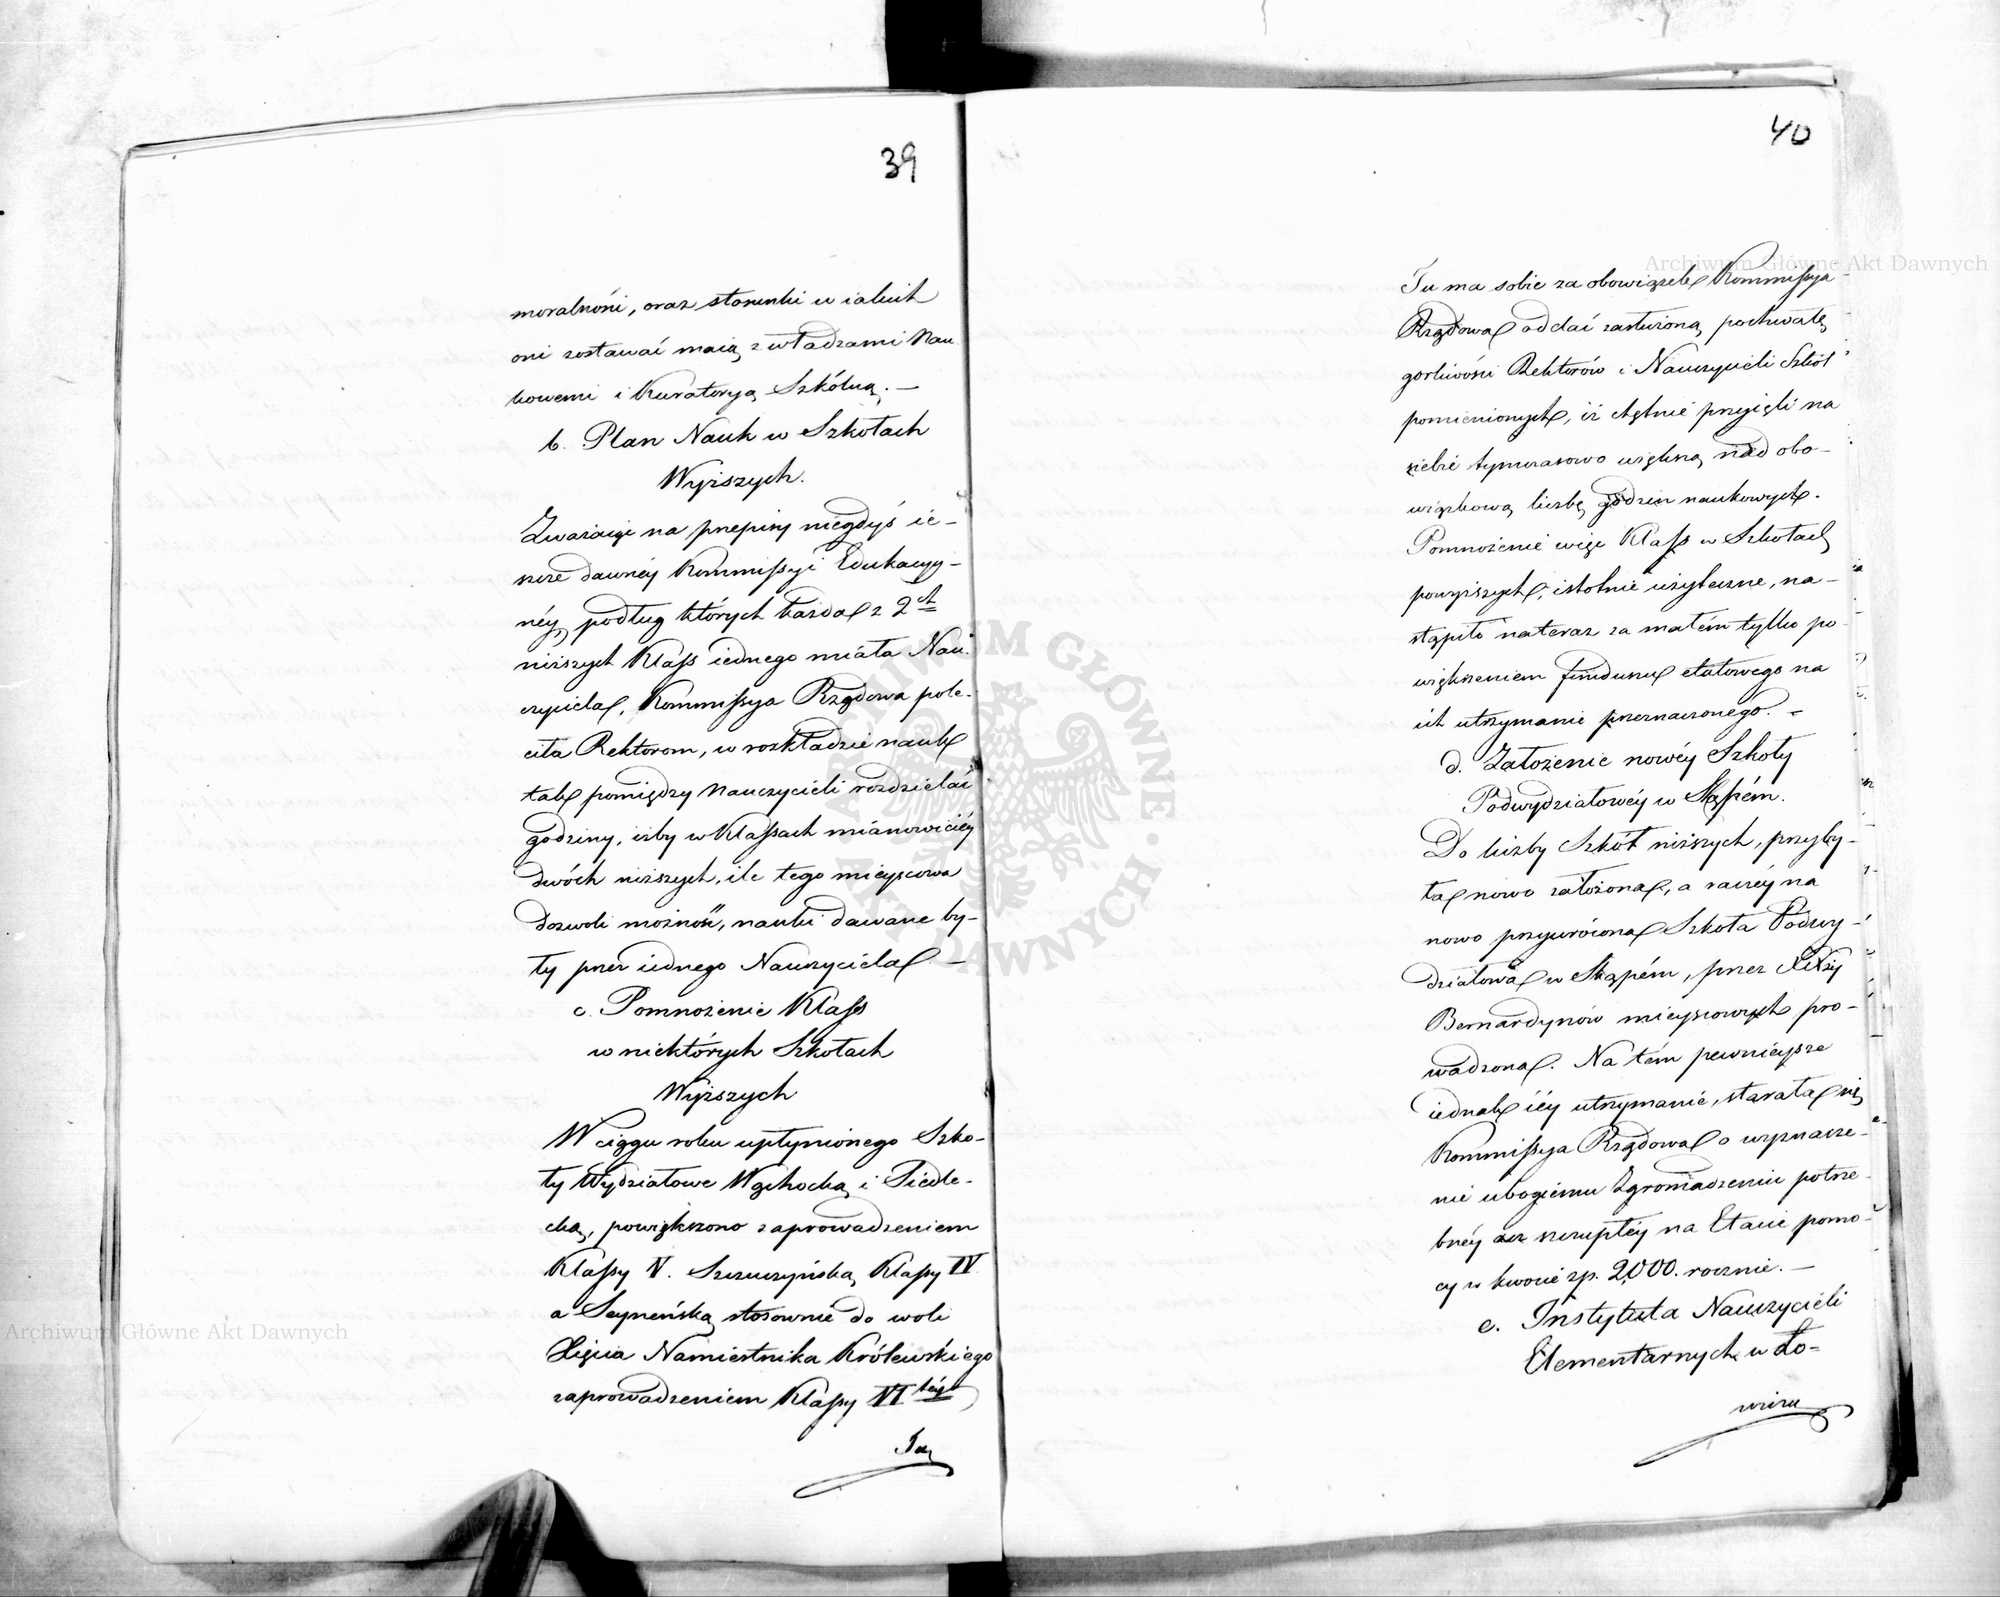 39
moralności, oraz stosunki w iakich
oni zostawać maią z władzami Nau-
kowemi i Kuratoryą Szkólną. —
b. Plan Nauk w Szkołach
Wyższych.
Zważaiąc na przepisy niegdyś ie-
szcze dawnéy Kommissyi Edukacyy-
néy, podług których każda z 2ch
niższych Klass iednego miała Nau-
czyciela, Kommissya Rządowa pole-
ciła Rektorom, w rozkładzie nauk
tak pomiędzy Nauczycieli rozdzielać
godziny, iżby w Klassach mianowiciéy
dwóch niższych, ile tego mieyscowa
dozwoli możność, nauki dawane by-
ły przez iednego Nauczyciela —
c. Pomnożenie Klass
w niektórych Szkołach
Wyższych
W ciągu roku upłynionego Szko-
ły Wydziałowe Wąchocką i Siedle-
cką, powiększono zaprowadzeniem
Klassy V. Szczuczyńską Klassy IV
a Seyneńską stosownie do woli
Xięcia Namiestnika Królewskiego
zaprowadzeniem Klassy VItéy
Tu
40
Tu ma sobie za obowiązek Kommissya
Rządowa oddać zasłużoną pochwałę
gorliwości Rektorów i Nauczycieli Szkół
pomienionych, iż chętnie przyięli na
siebie tymczasowo większą nad obo-
wiązkową liczbę godzin naukowych.
Pomnożenie więc Klass w Szkołach
powyższych, istotnie użyteczne, na-
stąpiło nateraz za małém tylko po-
większeniem funduszu etatowego na
ich utrzymanie przeznaczonego. —
d. Założenie nowéy Szkoły
Podwydziałowéy w Skąpém.
Do liczby Szkół niższych, przyby-
ła nowo założona, a raczéy na
nowo przywrócona Szkoła Podwy-
działowa w Skąpém, przez XXży
Bernardynów mieyscowych pro-
wadzona. Na tém pewnieysze
iednak iéy utrzymanie, starała się
Kommissya Rządowa o wyznacze-
nie ubogiemu Zgromadzeniu potrze-
bnéy acz szczupłéy na Etacie pomo-
cy w kwocie zp. 2,000. rocznie. —
e. Instytuta Nauczycieli
Elementarnych w Ło-
wiczu
Archiwum Główne Akt Dawnych
Archiwum Główne Akt Dawnych
ARCHIWUM GŁÓWNE AKT DAWNYCH